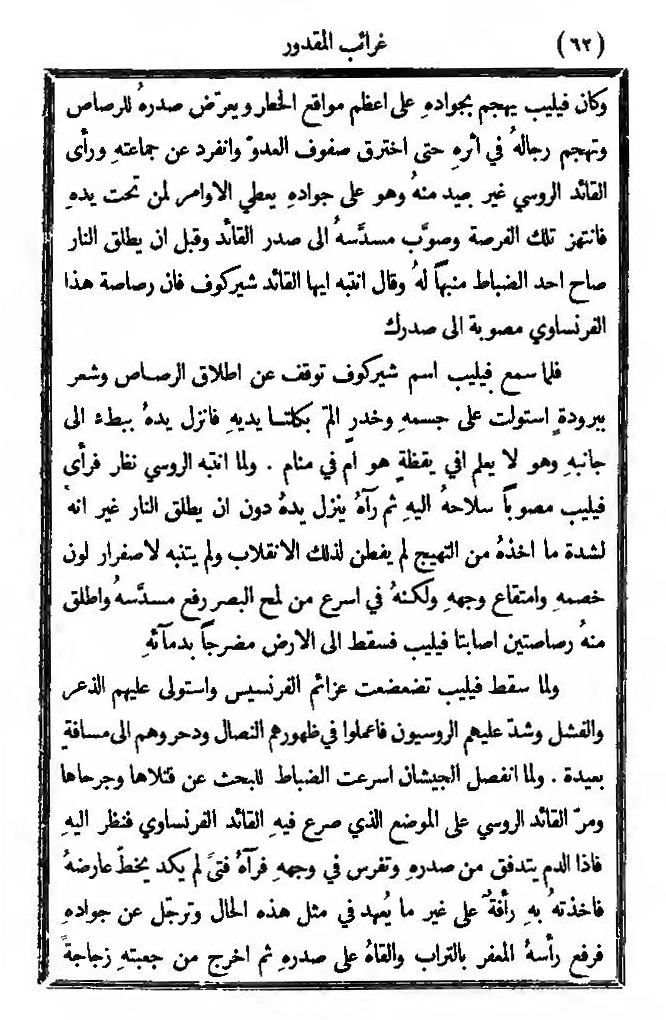 (٦٢) غرائب المقدور
وكان فيليب يهجم بجوادهِ على اعظم مواقع الخطار ويعرّض صدرهُ للرصاص
وتهجم رجالهُ في اثرهِ حتى اخترق صفوف العدوّ وانفرد عن جماعتهِ ورأى
القائد الروسي غير بعيد منهُ وهو على جوادهِ يعطي الاوامر لمن تحت يدهِ
فانتهز تلك الفرصة وصوَّب مسدَّسهُ الى صدر القائد وقبل ان يطلق النار
صاح احد الضباط منبهاً لهُ وقال انتبه ايها القائد شيركوف فان رصاصة هذا
الفرنساوي مصوبة الى صدرك
فلما سمع فيليب اسم شيركوف توقف عن اطلاق الرصاص وشعر
ببرودةٍ استولت على جسمهِ وخدرٍ المّ بكلتا يديهِ فانزل يدهُ ببطء الى
جانبهِ وهو لا يعلم افي يقظةٍ هو ام في منام . ولما انتبه الروسي نظار فرأى
فيليب مصوباً سلاحهُ اليهِ ثم رآهُ ينزل يدهُ دون ان يطلق النار غير انهُ
لشدة ما اخذهُ من التهيج لم يفطن لذلك الانقلاب ولم يتنبه لاصفرار لون
خصمهِ وامتقاع وجههِ ولكنهُ في اسرع من لمح البصر رفع مسدَّسهُ واطلق
منهُ رصاصتين اصابتا فيليب فسقط الى الارض مضرجاً بدمآئهِ
ولما سقط فيليب تضعضعت عزائم الفرنسيس واستولى عليهم الذعر
والفشل وشدّ عليهم الروسيون فاعملوا في ظهورهم النصال ودحروهم الى مسافةٍ
بعيدة . ولما انفصل الجيشان اسرعت الضباط للبحث عن قتلاها وجرحاها
ومرّ القائد الروسي على الموضع الذي صرع فيهِ القائد الفرنساوي فنظر اليهِ
فاذا الدم يتدفق من صدرهِ وتفرس في وجههِ فرآهُ فتىً لم يكد يخطّ عارضهُ
فاخذتهُ بهِ رأفةٌ على غير ما يُعهد في مثل هذه الحال وترجّل عن جوادهِ
فرفع رأسهُ المعفر بالتراب والقاهُ على صدرهِ ثم اخرج من جعبتهِ زجاجةً